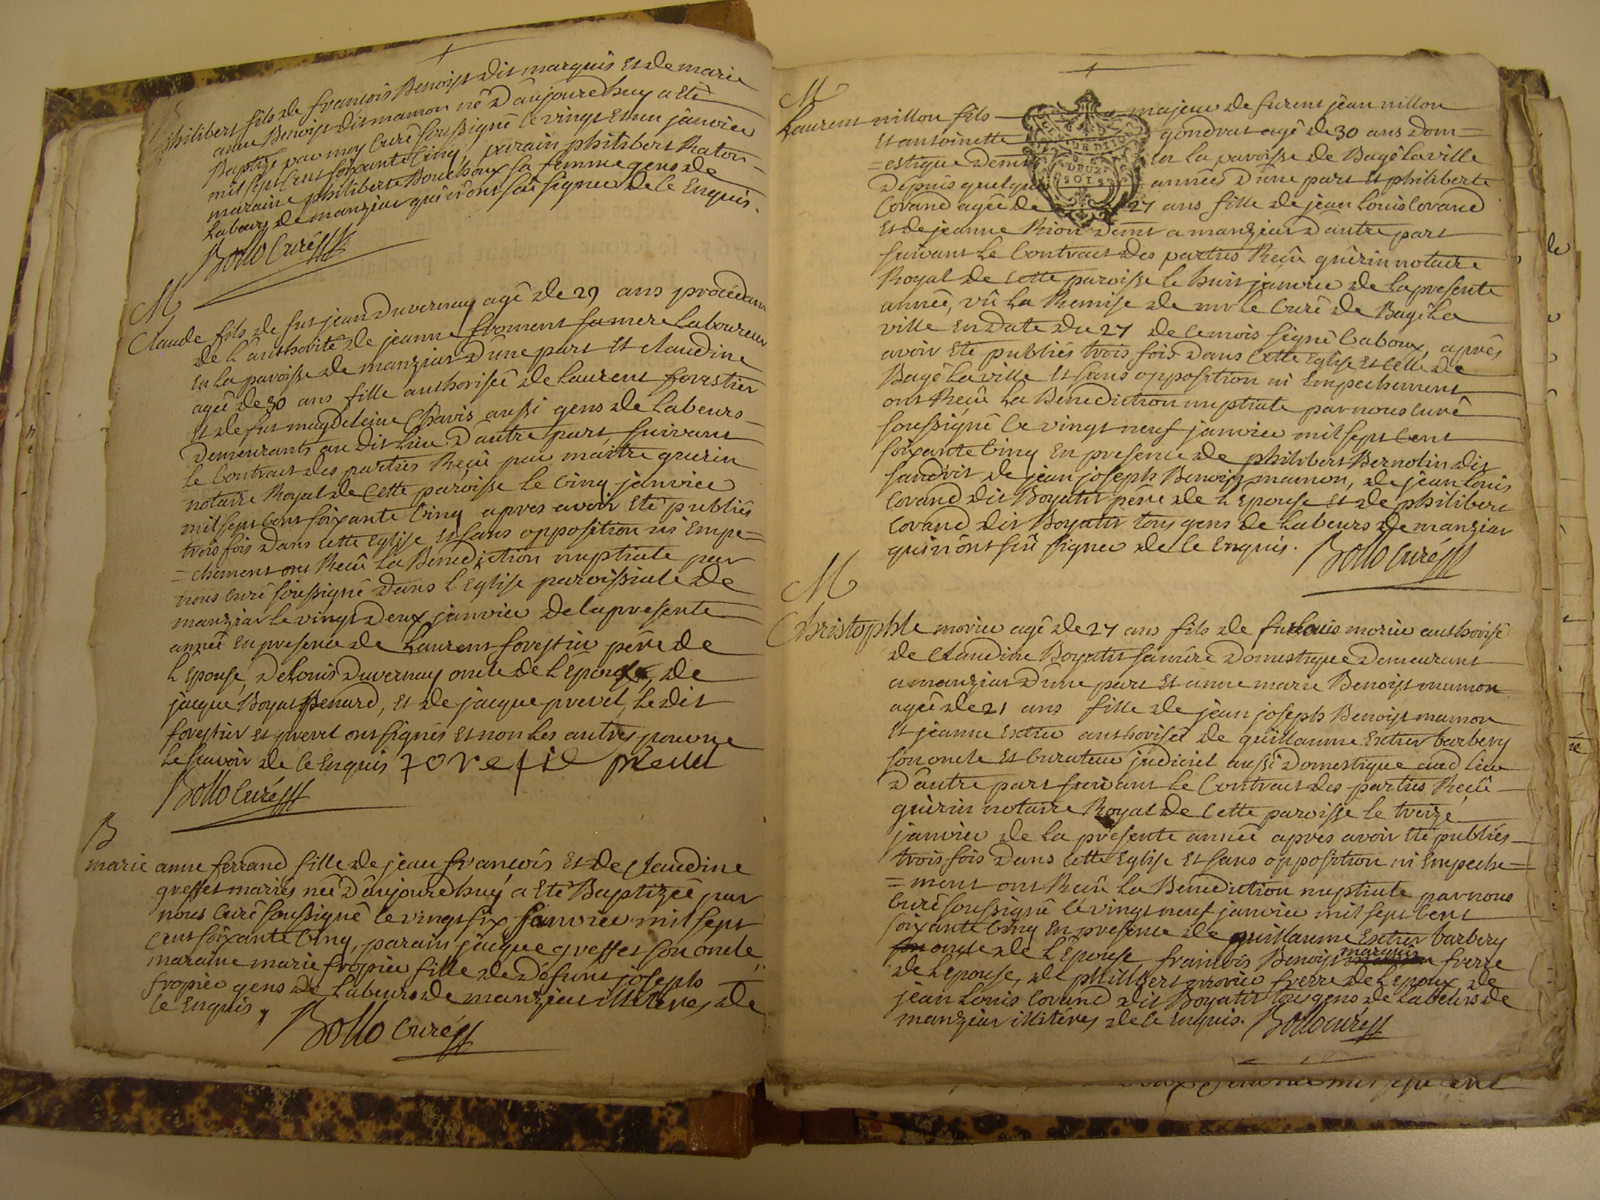 B
philibert fils de francois Benoist dit marquis et de marie
anne Benoist dit mamon né d'aujourdhuy a eté
Baptisé par moy Curé soussigné le vingt et un janvier
mil sept cent soixante Cinq, parain philibert
maraine philiberte Bouchoux sa femme gens de
Labeurs de manziat qui n'ont sû signer de Ce Enquis.
Bollo Curé
M
Claude fils de fut jean Duvernay agé de 29 ans procédant
de l'authorité de jeanne froment sa mere Laboureur
en la paroisse de manziat d'une part Et claudine
agée de 30 ans fille authorisée de Laurent forestier
Et de fut magdeleine Chavis aussi gens de Labeurs
Demeurants au dit Lieu D'autre part suivant
le Contract des parties Reçû par maitre guerin
notaire Royal de Cette paroisse le Cinq janvier
mil sept cent soixante Cinq apres avoir Eté publiés
trois fois dans cette Eglise et sans opposition ni Empe=
=chement ont Reçû La Benediction nuptiale par
nous curé soussigné dans l'Eglise paroissiale de
manziat le vingt Deux janvier de la presente
année En presence de Laurent forestier père de
l'Epouse, De Louis Duvernay oncle de l'Epoux, de
jacque Boyat Benard, et de jacque prevel, le dit
forestier et prevel ont signés Et non les autres pour ne
le savoir de Ce Enquis forestie prevel
Bollo Curé
B
marie anne ferrand fille de jean francois et de Claudine
greffet mariés née d'aujourdhuy a eté Baptizée par
nous Curé soussigné le vingt six janvier mil sept
Cent soixante Cinq, parain jacque greffet son oncle,
maraine marie fropier fille de défunt joseph
fropier gens de Labeurs de manziat illiterés de
Ce Enquis.
Bollo Curé
M
Laurent nillon fils majeur de furent jean nillon
Et antoinette gondrat agé de 30 ans dom=
=estique Demeurant en la paroisse de Bagé la ville
Depuis quelques années d'une part Et philiberte
Corand agée de 27 ans fille de jean Louis Corand
Et de jeanne Rion Demt a manziat d'autre part
suivant le Contract des parties Reçû guerin notaire
Royal de Cette paroisse le huit janvier de la presente
année, vû la Remise de mr le Curé de Bagé La
ville En Date du 27 de ce mois signé Caboux, après
avoir Eté publiés trois fois dans Cette Eglise et Celle de
Bagé la ville Et sans opposition ni Empechement
ont Reçû la Benediction nuptiale par nous Curé
soussigné Ce vingt neuf janvier mil sept Cent
soixante Cinq En presence de philibert Bernolin dit
jandrit de jean joseph Benoist mamon, de jean Louis
Corand dit Boyatir pere de l'Epouse et de philibert
Corand dit Boyatir tous gens de Labeurs de manziat
qui n'ont sû signer de Ce Enquis. Bollo Curé
M
Christophle morier agé de 27 ans fils de fut Louis morier authorisé
de Claudine Boyatir sa mère Domestique Demeurant
a manziat d'une part Et anne marie Benoist mamon
agée de 21 ans fille de jean joseph Benoist mamon
Et jeanne Extier authorisée de guillaume Extier barbery
son oncle Et Curateur judiciel aussi Domestique aud Lieu
D'autre part suivant le Contract des parties Reçû
guérin notaire Royal de Cette paroisse le treize
janvier de la presente année apres avoir Eté publiés
trois fois dans Cette Eglise Et sans opposition ni Empeche=
=ment ont Reçû la Benediction nuptiale par nous
Curé soussigné le vingt neuf janvier mil sept Cent
soixante Cinq En presence de guillaume Extier barbery
oncle de l'Epouse, francois Benoist mamon frere
de l'Epouse, de philibert morier frere de l'Epoux, de
jean Louis Corand dit Boyatir tous gens de Labeurs de
manziat illiterés de Ce Enquis. Bollo Curé